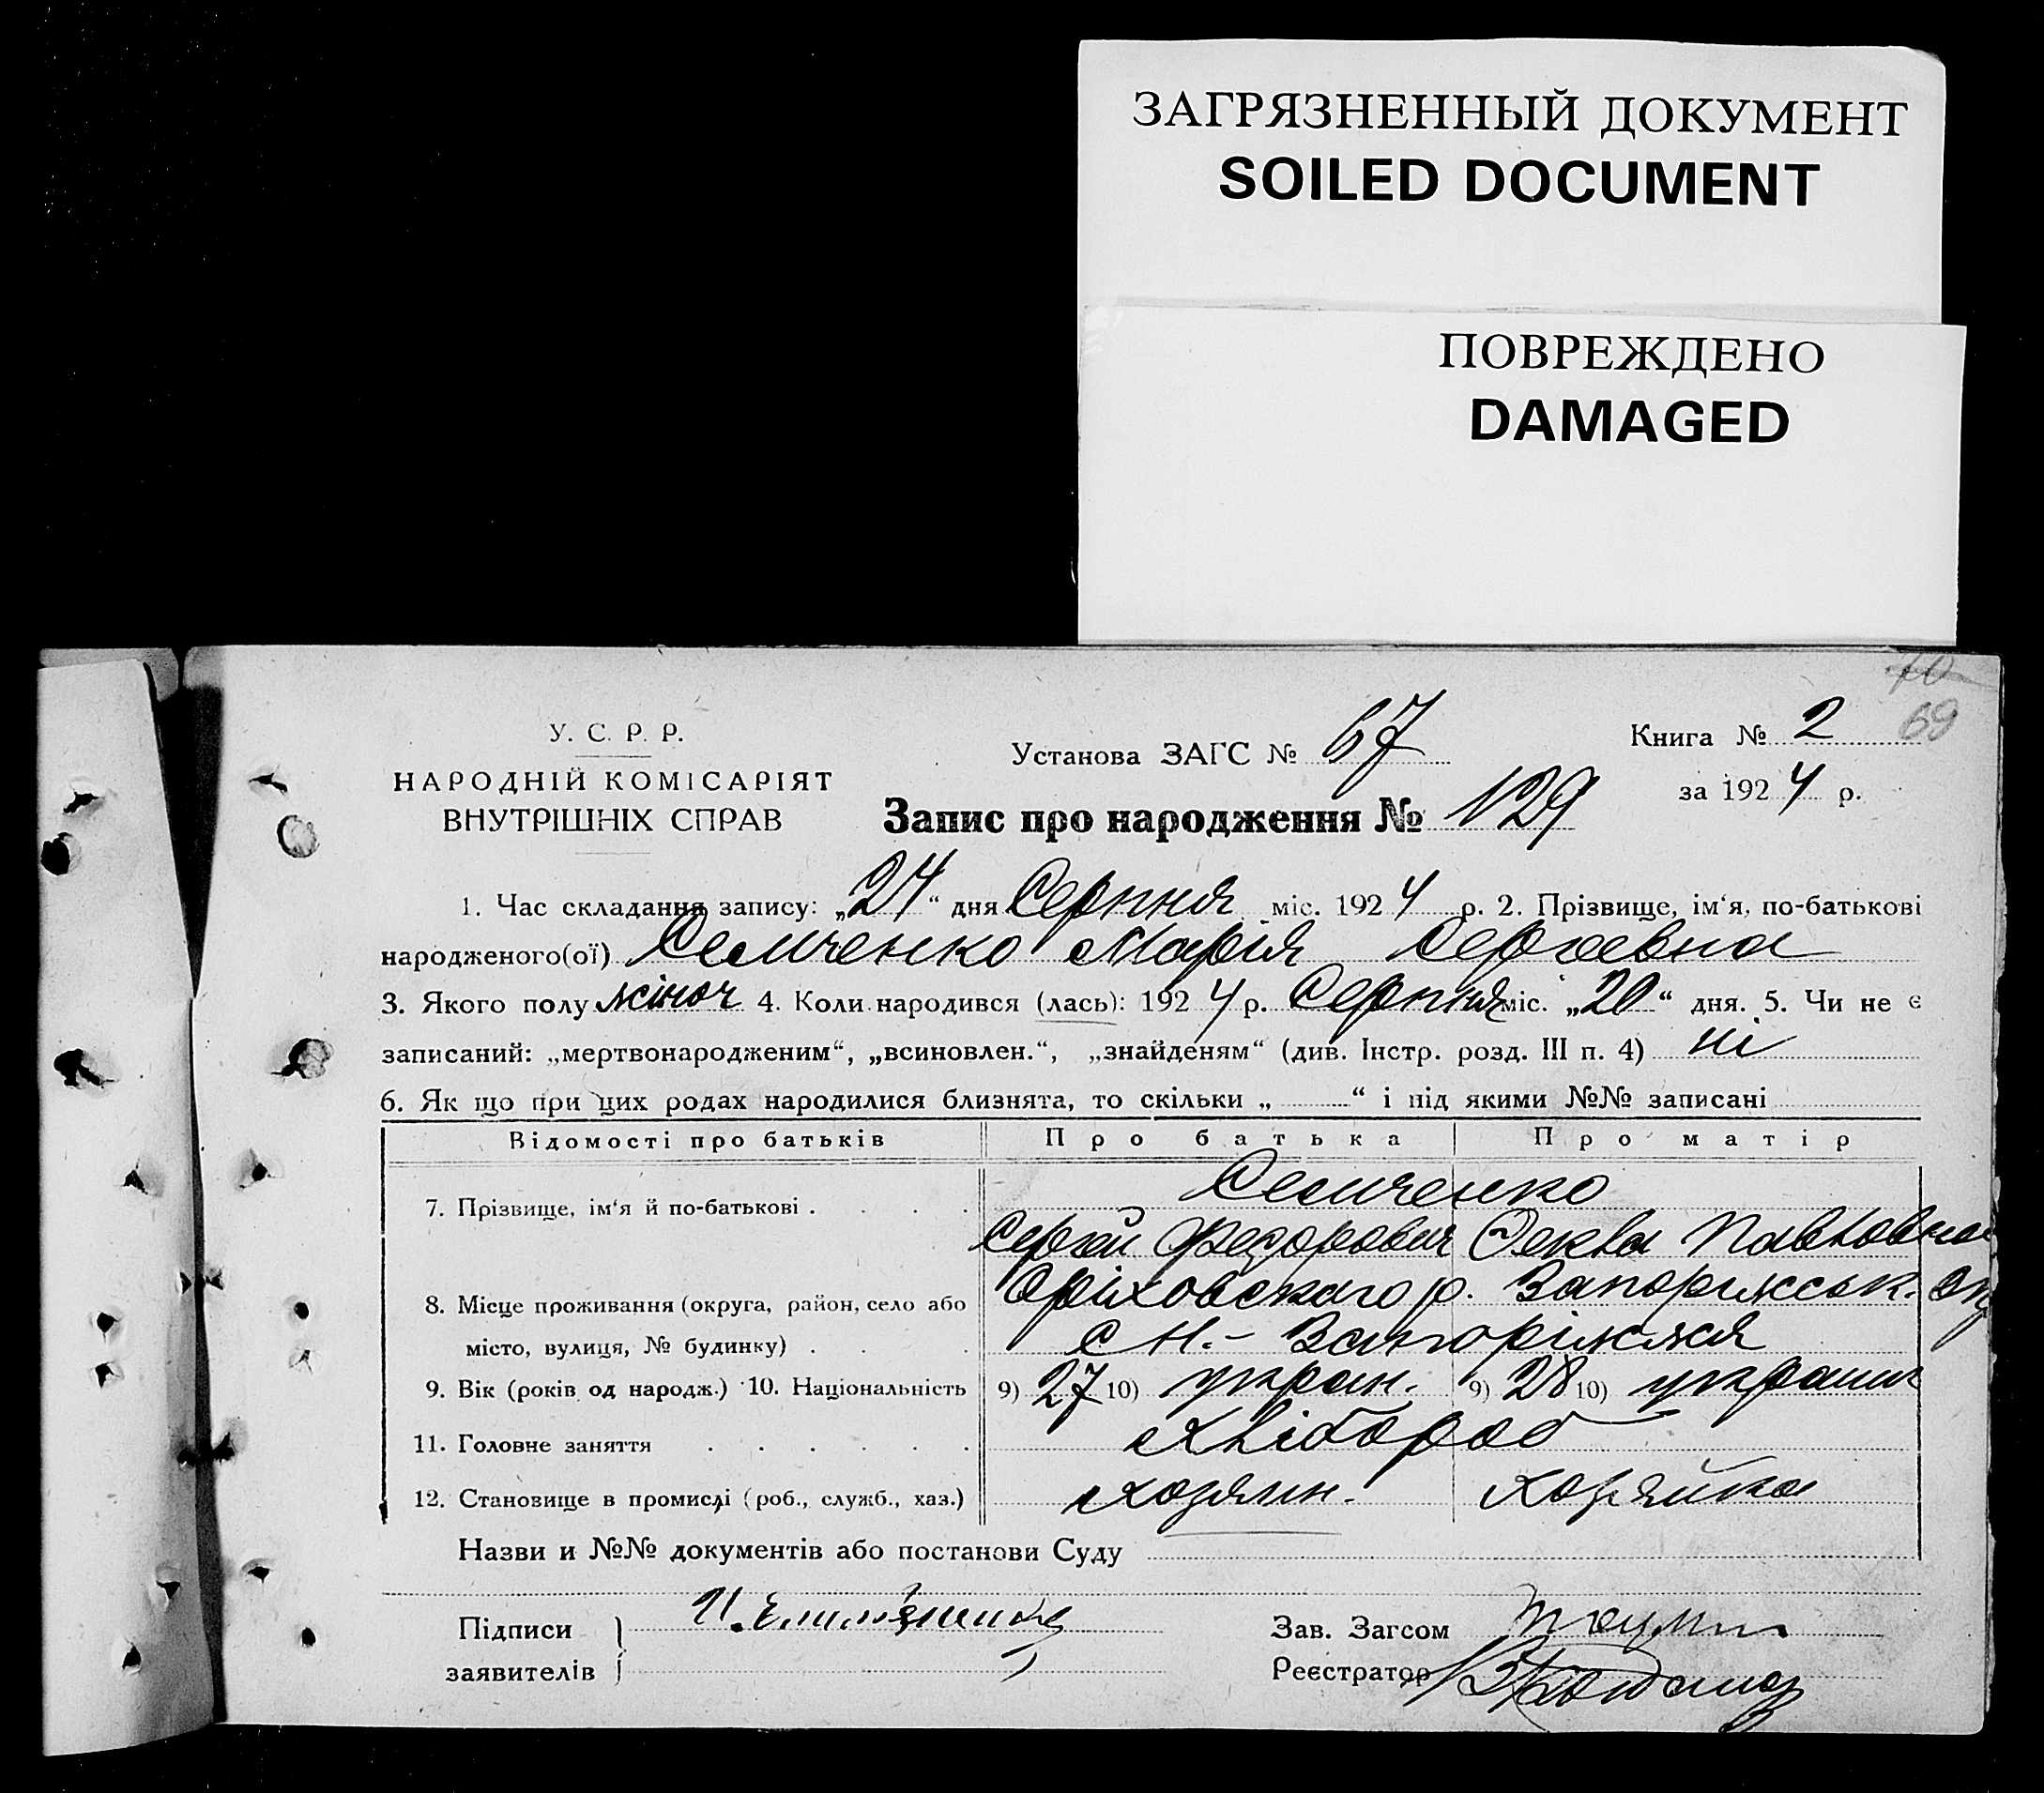 ЗАГРЯЗНЕННЫЙ ДОКУМЕНТ
SOILED DOCUMENT
ПОВРЕЖДЕНО
DAMAGED
70
69
У. С. Р. Р.
НАРОДНІЙ КОМІСАРІЯТ
ВНУТРІШНІХ СПРАВ
Установа ЗАГС № 67
Книга № 2
за 1924 р.
Запис про народження № 129
1. Час складання запису: „24“ дня Серпня міс. 1924 р. 2. Прізвище, ім‘я, по-батькові
народженого(ої) Семченко Марія Сергаевна
3. Якого полу жіноч 4. Коли народився (лась): 1924 р. Серпня міс. „20“ дня. 5. Чи не є
записаний: „мертвонародженим“, „всиновлен.“, „знайденям“ (див. Інстр. розд. III п. 4) ні
6. Як що при цих родах народилися близнята, то скільки „ “ і під якими №№ записані
Відомості про батьків Про батька Про матір
Семченко
7. Прізвище, ім‘я й по-батькові
Сергій Федорович Фекла Павловна
Оріховскаго р. Запоріжськ. окр
8. Місце проживання (округа, район, село або
місто, вулиця, № будинку) с Н.- Запоріжжя
9. Вік (років од народж.) 10. Національність 9) 27 10) укран. 9) 28 10) украин
11. Головне заняття Хлібороб
12. Становище в промислі (роб., служб., хаз.) хозяин. хозяйка
Назви и №№ документів або постанови Суду
Підписи
заявителів
Зав. Загсом
Реєстратор